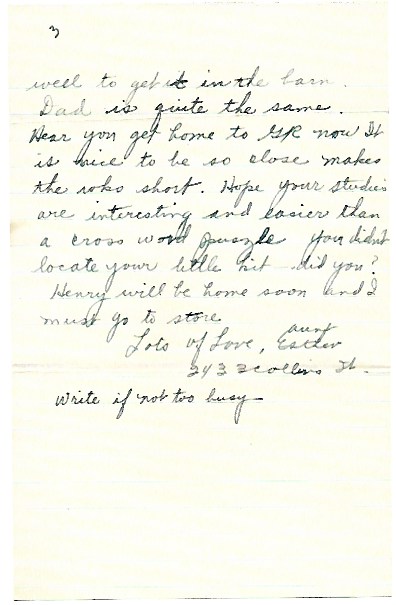 3
well to get it in the barn.
Dad is quite the same.
Hear you get home to GR now It
is nice to be so close makes
the wks short. Hope your studies
are interesting and easier than
a cross word puzzle you didn't
locate your little hit did you?
Henry will be home soon and I
must go to store
Lots of Love, aunt
Esther
2432 Collins St.
Write if not too busy